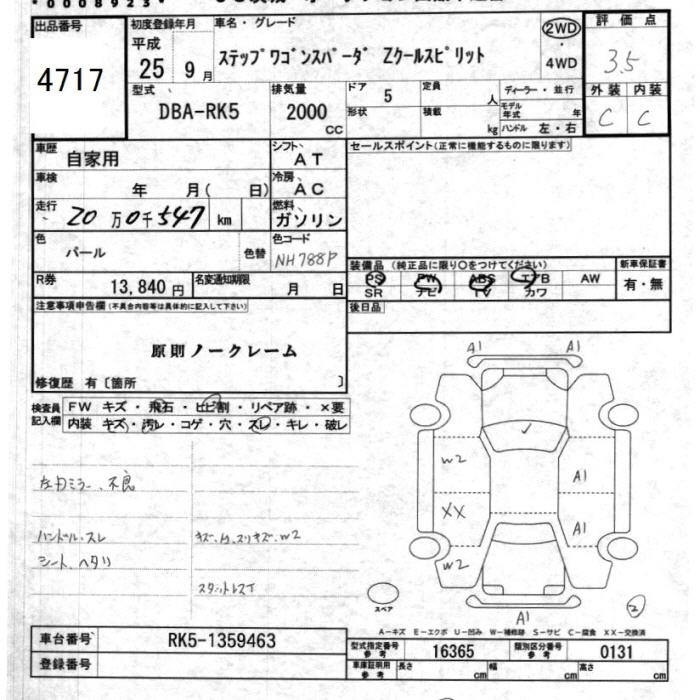 出品番号
4717
初度登録年月
平成
25 9月
車名・グレード
ステップワゴンスパーダ Zクールスピリット
2WD
・
4WD
評価点
3.5
外装 内装
C C
型式
DBA-RK5
排気量
2000
CC
ドア 5
形状
定員 人
積載 kg
ディーラー・並行
モデル年式 年
ハンドル 左・右
車歴
自家用
シフト
AT
セールスポイント(正常に機能するものに限ります)
車検
年 月( 日)
冷房
AC
走行
20万0千547 km
燃料
ガソリン
色
パール
色替
色コード
NH788P
装備品 (純正品に限り○をつけてください)
PS PW ABS エアB AW
SR ナビ TV カワ
新車保証書
有・無
R券
13,840円
名変通知期限
月 日
後日品
注意事項申告欄(不具合内容等は具体的に記入して下さい)
原則ノークレーム
修復歴 有〔箇所 〕
検査員記入欄
FW キズ・飛石・ヒビ割・リペア跡・×要
内装 キズ・汚レ・コゲ・穴・スレ・キレ・破レ
左右ミラー、不良
ハンドル・スレ
シート、ヘタリ
W2
A1 A1
W2 A1
XX A1
W2
A1
スペア
2
A-キズ E-エクボ U-凹み W-補修跡 S-サビ C-腐食 XX-交換済
車台番号 RK5-1359463
登録番号
型式指定番号 参考 16365
類別区分番号 参考 0131
車庫証明用 参考 長さ cm 幅 cm 高さ cm